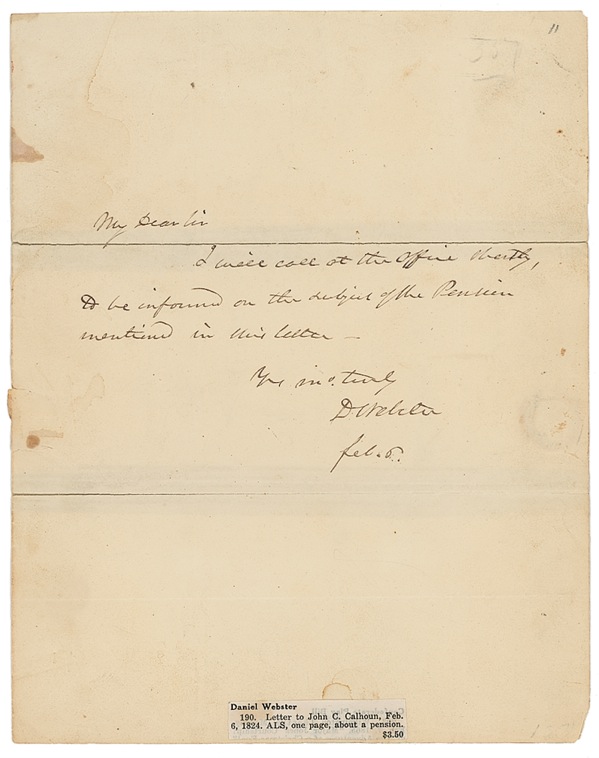 11
My Dear Sir
I will call at the office shortly,
to be informed on the subject of the Pension
mentioned in this letter —
Yrs mo. truly
D Webster
feb. 6.
Daniel Webster
190. Letter to John C. Calhoun, Feb.
6, 1824. ALS, one page, about a pension.
$3.50